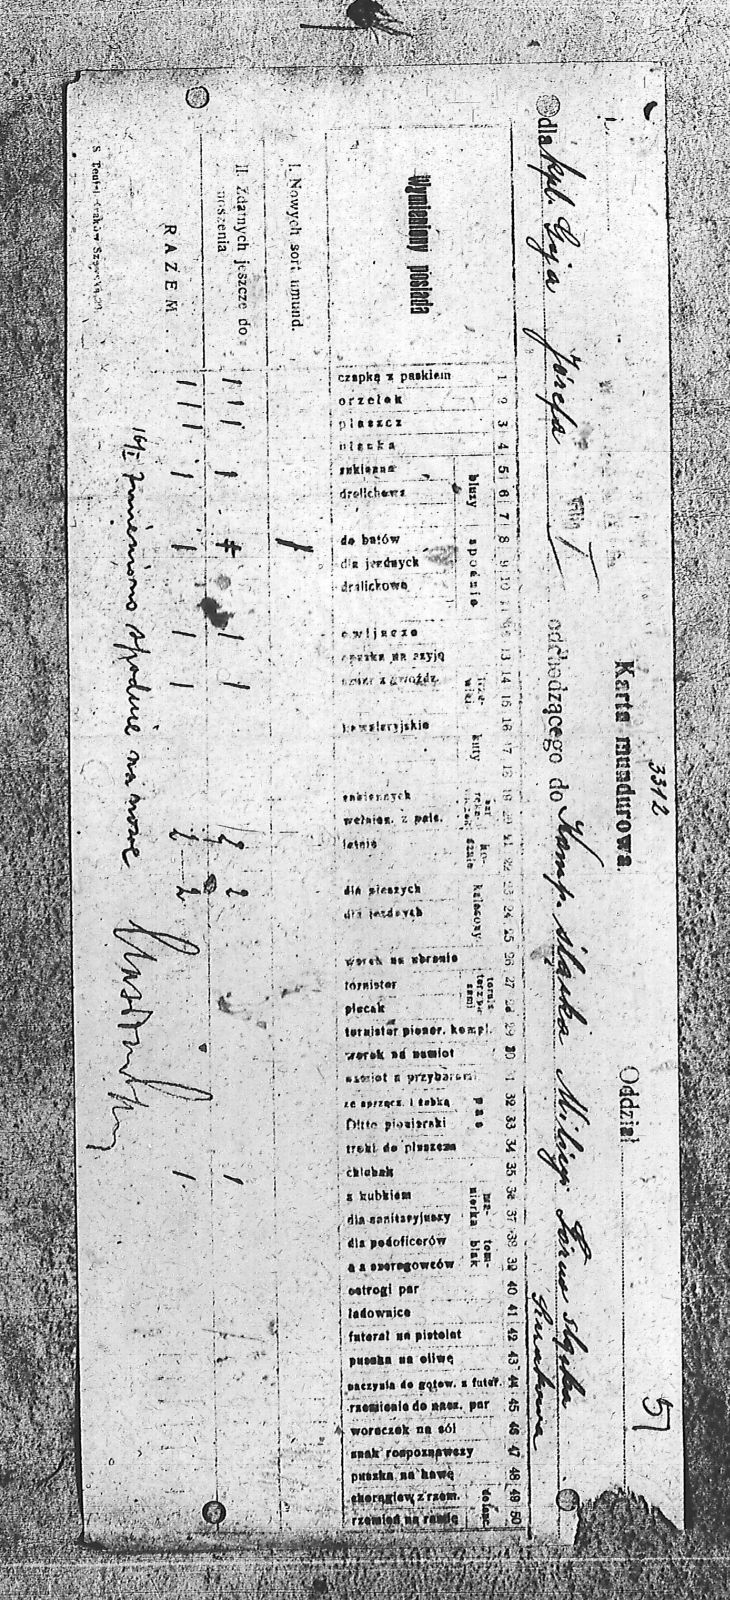 3312
Karta mundurowa.
Oddział
51
dla kpl. Gaja Józefa
odchodzącego do Komp. sztabowa Milicji Górno śląska
Wymieniony posiada
1 czapkę z paskiem
2 orzełek
3 płaszcz
4 bluzka
bluzy
5 sukienna
6 drelichowa
7
spodnie
8 do butów
9 dla jezdnych
10 drelichowe
11
owijacze
13 opaska na szyję
14
15
16 kawaleryjskie
17
18
19 sukiennych
20 wełnian. z palc.
21 letnie
22
kalesony
23 dla pieszych
24 dla jezdnych
25
26 worek na ubranie
27 tornister
28 plecak
29 tornister pionier. kompl.
30 worek na namiot
namiot z przyborami
pas
32 ze sprzącz. i żabką
33 Ditto pionierski
34 troki do płaszcza
35 chlebak
36 z kubkiem
37 dla sanitaryjuszy
38 dla podoficerów
39 szeregowców
40 ostrogi par
41 ładownice
42 futerał na pistolet
43 puszka na oliwę
44 naczynia do gotow. z futer.
45 rzemienie do nacz. par
46 woreczek na sól
47 znak rozpoznawczy
48 puszka na kawę
49 chorągiew z rzem.
50 rzemień na
I. Nowych sort umund.
1
II. Zdatnych jeszcze do noszenia
1 1 1 1 1 1 2 2 1
RAZEM
1 1 1 1 1 1 1 2 2 1
16/I zmieniono spodnie na nowe